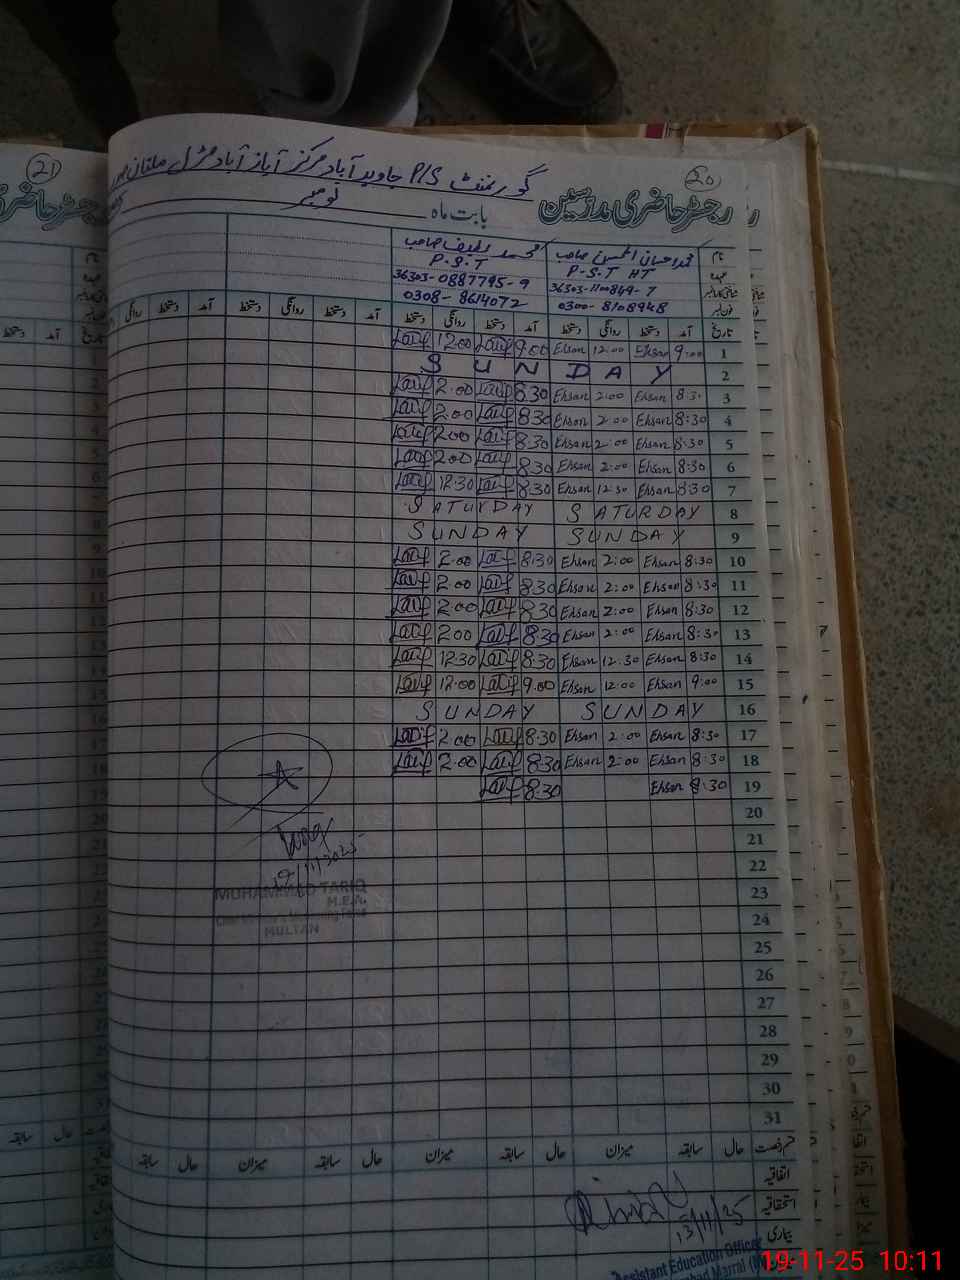 20
رجسٹر حاضری مدرسین
گورنمنٹ P/S جاوید آباد مرکز
بابت ماہ نومبر
نام محمد احسان الحسن صاحب محمد لطیف صاحب
عہدہ P.S.T HT P.S.T
36303-1100849-7 36303-0887795-9
فون نمبر 0300-8108948 0308-8614072
تاریخ آمد دستخط روانگی دستخط آمد دستخط روانگی دستخط آمد دستخط روانگی دستخط آمد دستخط روانگی
1 9:00 Ehsan 12:00 Ehsan 9.00 Latif 12.00 Latif
2 SUNDAY
3 8:30 Ehsan 2:00 Ehsan 8.30 Latif 2.00 Latif
4 8:30 Ehsan 2:00 Ehsan 8.30 Latif 2.00 Latif
5 8:30 Ehsan 2:00 Ehsan 8.30 Latif 2.00 Latif
6 8:30 Ehsan 2:00 Ehsan 8.30 Latif 2.00 Latif
7 8:30 Ehsan 12:30 Ehsan 8.30 Latif 12.30 Latif
8 SATURDAY SATURDAY
9 SUNDAY SUNDAY
10 8:30 Ehsan 2:00 Ehsan 8.30 Latif 2.00 Latif
11 8:30 Ehsan 2:00 Ehsan 8.30 Latif 2.00 Latif
12 8:30 Ehsan 2:00 Ehsan 8.30 Latif 2.00 Latif
13 8:30 Ehsan 2:00 Ehsan 8.30 Latif 2.00 Latif
14 8:30 Ehsan 12:30 Ehsan 8.30 Latif 12.30 Latif
15 9:00 Ehsan 12:00 Ehsan 9.00 Latif 12.00 Latif
16 SUNDAY SUNDAY
17 8:30 Ehsan 2:00 Ehsan 8.30 Latif 2.00 Latif
18 8:30 Ehsan 2:00 Ehsan 8.30 Latif 2.00 Latif
19 8:30 Ehsan 8.30 Latif
20
21
22
23
24
25
26
27
28
29
30
31
19/11/2025
MUHAMMAD TARIQ
M.E.A.
MULTAN
قسم رخصت حال سابقہ میزان حال سابقہ میزان حال سابقہ میزان حال سابقہ
اتفاقیہ
استحقاقیہ
بیماری
13/11/25
Assistant Education Officer
21
آمد دستخط
حال سابقہ
19-11-25 10:11